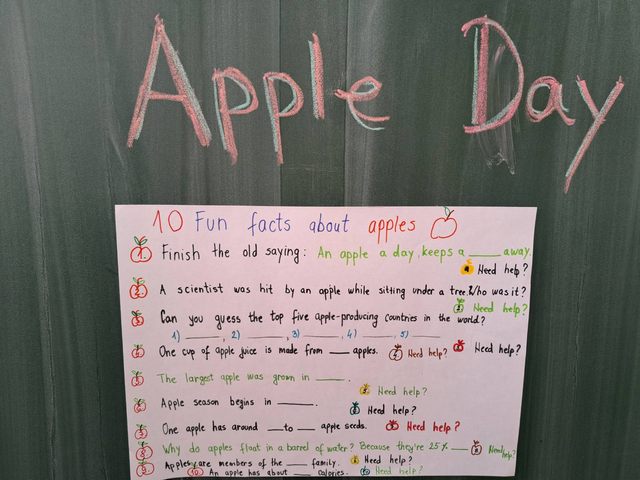 Apple Day
10 Fun facts about apples
1. Finish the old saying: An apple a day, keeps a ____ away.
Need help?
2. A scientist was hit by an apple while sitting under a tree. Who was it?
Need help?
3. Can you guess the top five apple-producing countries in the world?
1) ____, 2) ____, 3) ____, 4) ____, 5) ____
One cup of apple juice is made from ___ apples. Need help? Need help?
The largest apple was grown in ____.
Need help?
Apple season begins in ____.
Need help?
One apple has around __ to __ apple seeds. Need help?
8. Why do apples float in a barrel of water? Because they're 25% ___ Need help?
9. Apples are members of the ___ family. Need help?
10. An apple has about ___ calories. Need help?